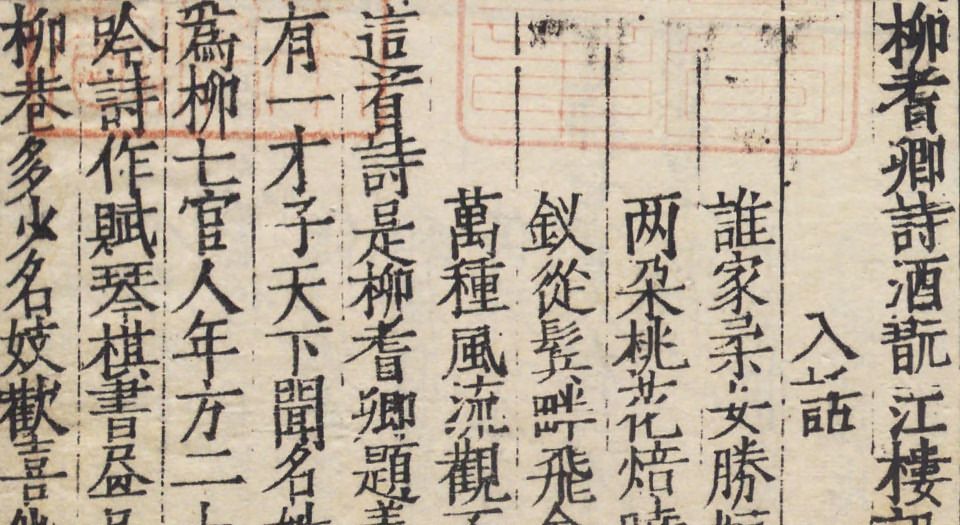 柳耆卿詩酒翫江樓
入話
誰家柔女勝
两朶桃花焙
釵從鬂畔飛
萬種風流觀
這首詩是柳耆卿題
有一才子天下聞名
爲柳七官人年方二
吟詩作賦琴棋書畫
柳巷多少名妓歡喜